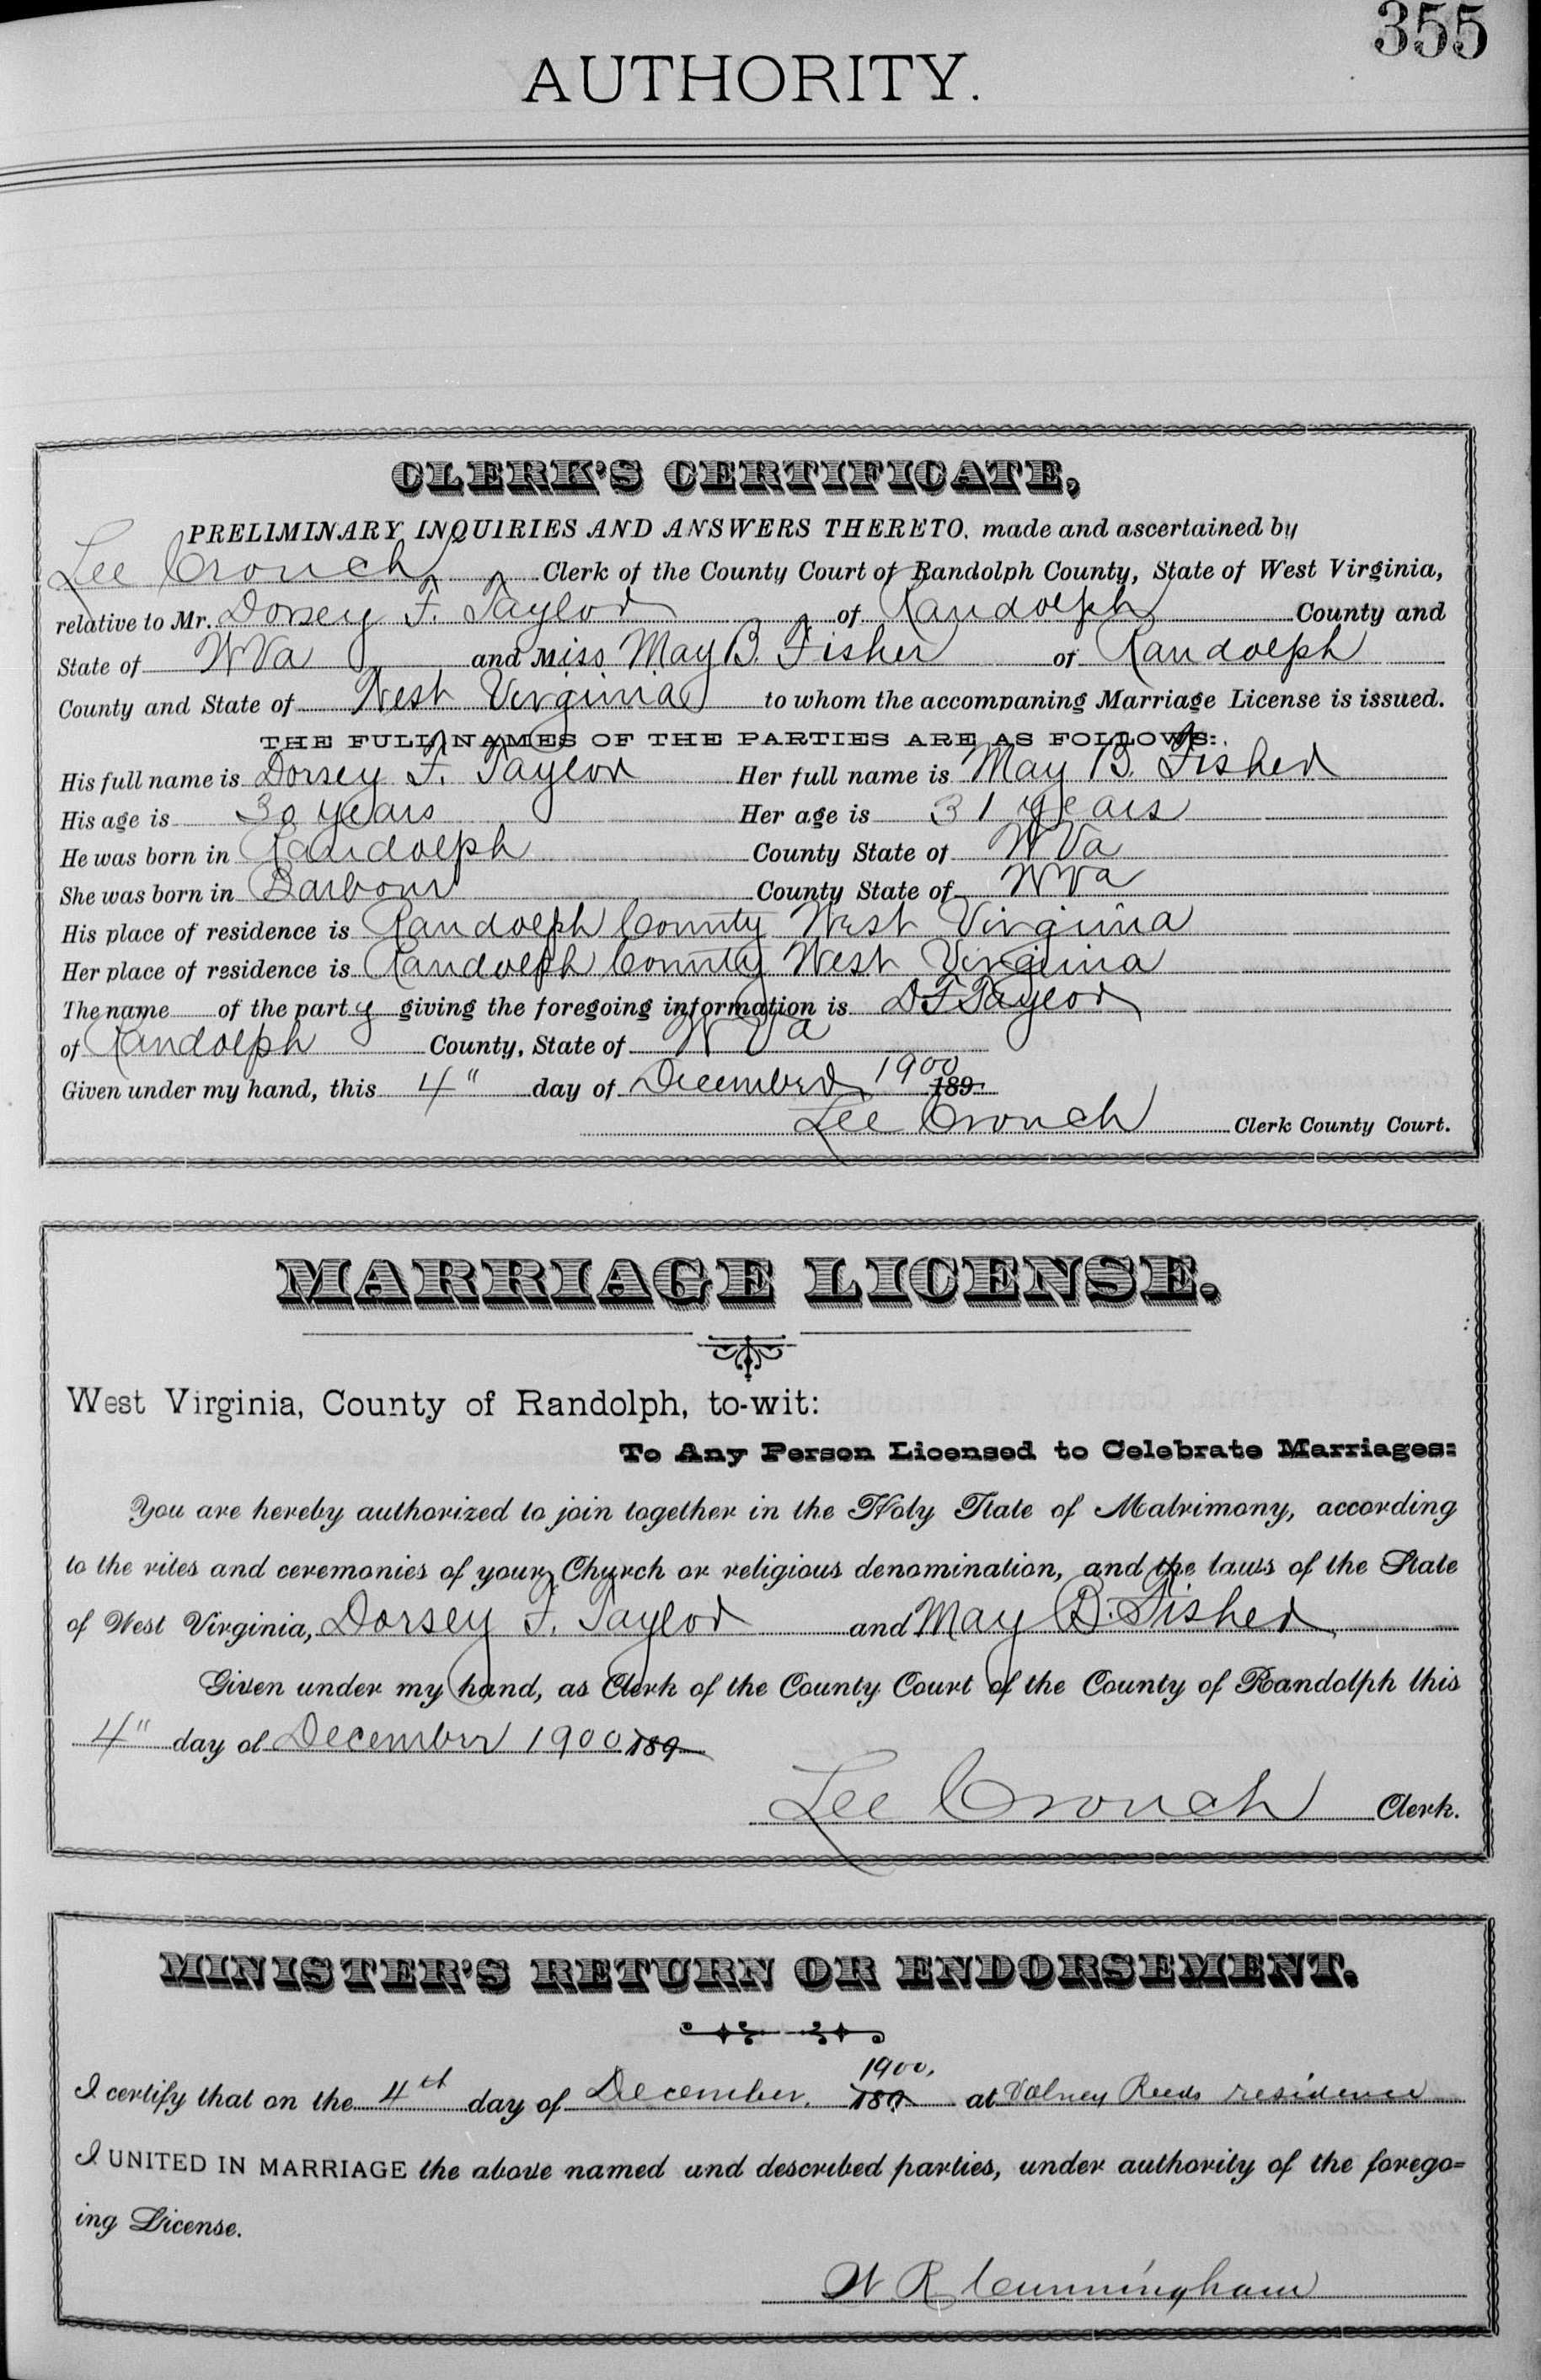 355
AUTHORITY.
CLERK'S CERTIFICATE,
PRELIMINARY INQUIRIES AND ANSWERS THERETO, made and ascertained by
Lee Crouch Clerk of the County Court of Randolph County, State of West Virginia,
relative to Mr. Dorsey F. Taylor of Randolph County and
State of W Va and Miss May B. Fisher of Randolph
County and State of West Virginia to whom the accompaning Marriage License is issued.
THE FULL NAMES OF THE PARTIES ARE AS FOLLOWS:
His full name is Dorsey F. Taylor Her full name is May B. Fisher
His age is 30 years Her age is 31 years
He was born in Randolph County State of W Va
She was born in Barbour County State of W Va
His place of residence is Randolph County West Virginia
Her place of residence is Randolph County West Virginia
The name of the party giving the foregoing information is D F Taylor
of Randolph County, State of W Va
Given under my hand, this 4" day of December 1900 189
Lee Crouch Clerk County Court.
MARRIAGE LICENSE.
West Virginia, County of Randolph, to-wit:
To Any Person Licensed to Celebrate Marriages:
You are hereby authorized to join together in the Holy State of Matrimony, according
to the rites and ceremonies of your Church or religious denomination, and the laws of the State
of West Virginia, Dorsey F. Taylor and May B. Fisher
Given under my hand, as Clerk of the County Court of the County of Randolph this
4" day of December 1900 189
Lee Crouch Clerk.
MINISTER'S RETURN OR ENDORSEMENT.
I certify that on the 4th day of December, 1900, 189 at Volney Reeds residence
I UNITED IN MARRIAGE the above named and described parties, under authority of the forego=
ing License.
W R Cunningham